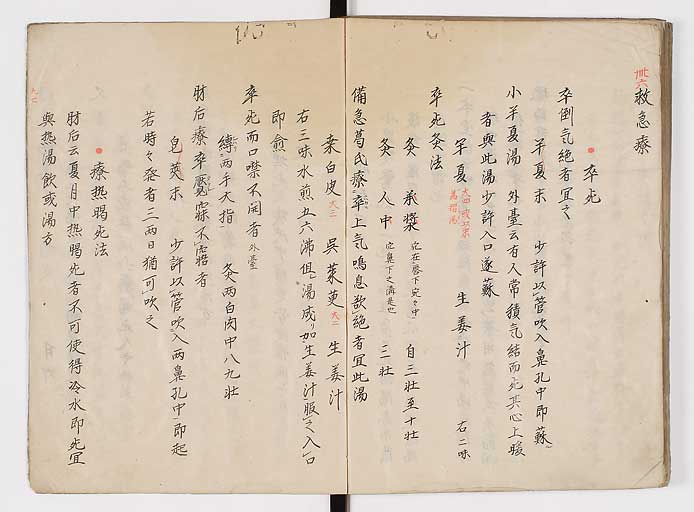 卅六
救急療
卒死
卒倒気絶者宜之
半夏末　少許以管吹入鼻孔中即蘇
小半夏湯　外臺云有人常積気結而死其心上暖
者與此湯少許入口遂蘇
半夏　生姜汁　右二味
卒死灸法
灸　承漿　在唇下宛々中　自三壮至十壮
灸　人中　鼻下之溝是也　三壮
備急葛氏療卒上気鳴息欲絶者宜此湯
桒白皮　大三　呉茱萸　大二　生姜汁
右三味水煎五六沸但湯成加生姜汁服之入口
即愈
卒死而口噤不開者　外臺
縛両手大指　灸両白肉中八九壮
肘后療卒魘寐不寤者
皂莢末　少許以管吹入両鼻孔中即起
若時々発者三両日猶可吹之
療熱暍死法
肘后云夏月中熱暍死者不可使得冷水即死宜
與熱湯飲或湯方